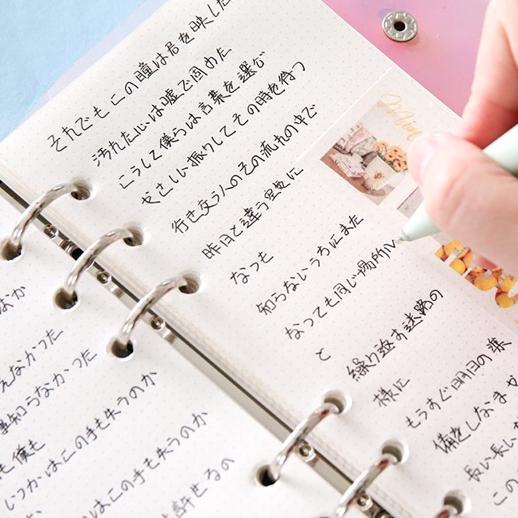 ばか
んなかった
事知らなかった
も僕も
いつかはこの手も失うのか
かはこの手も失うのか
許せるの
それでもこの瞳は君を映した
汚れた心は嘘で固めた
こうして僕らは言葉を選び
やさしい振りしてその時を待つ
行き交う人のその流れの中で
昨日と違う空気に
なっても
知らないうちにまた
なっても同じ場所に
と
繰り返す迷路の
様に
もうすぐ明日の準
備をしなきゃ
長い長い
この